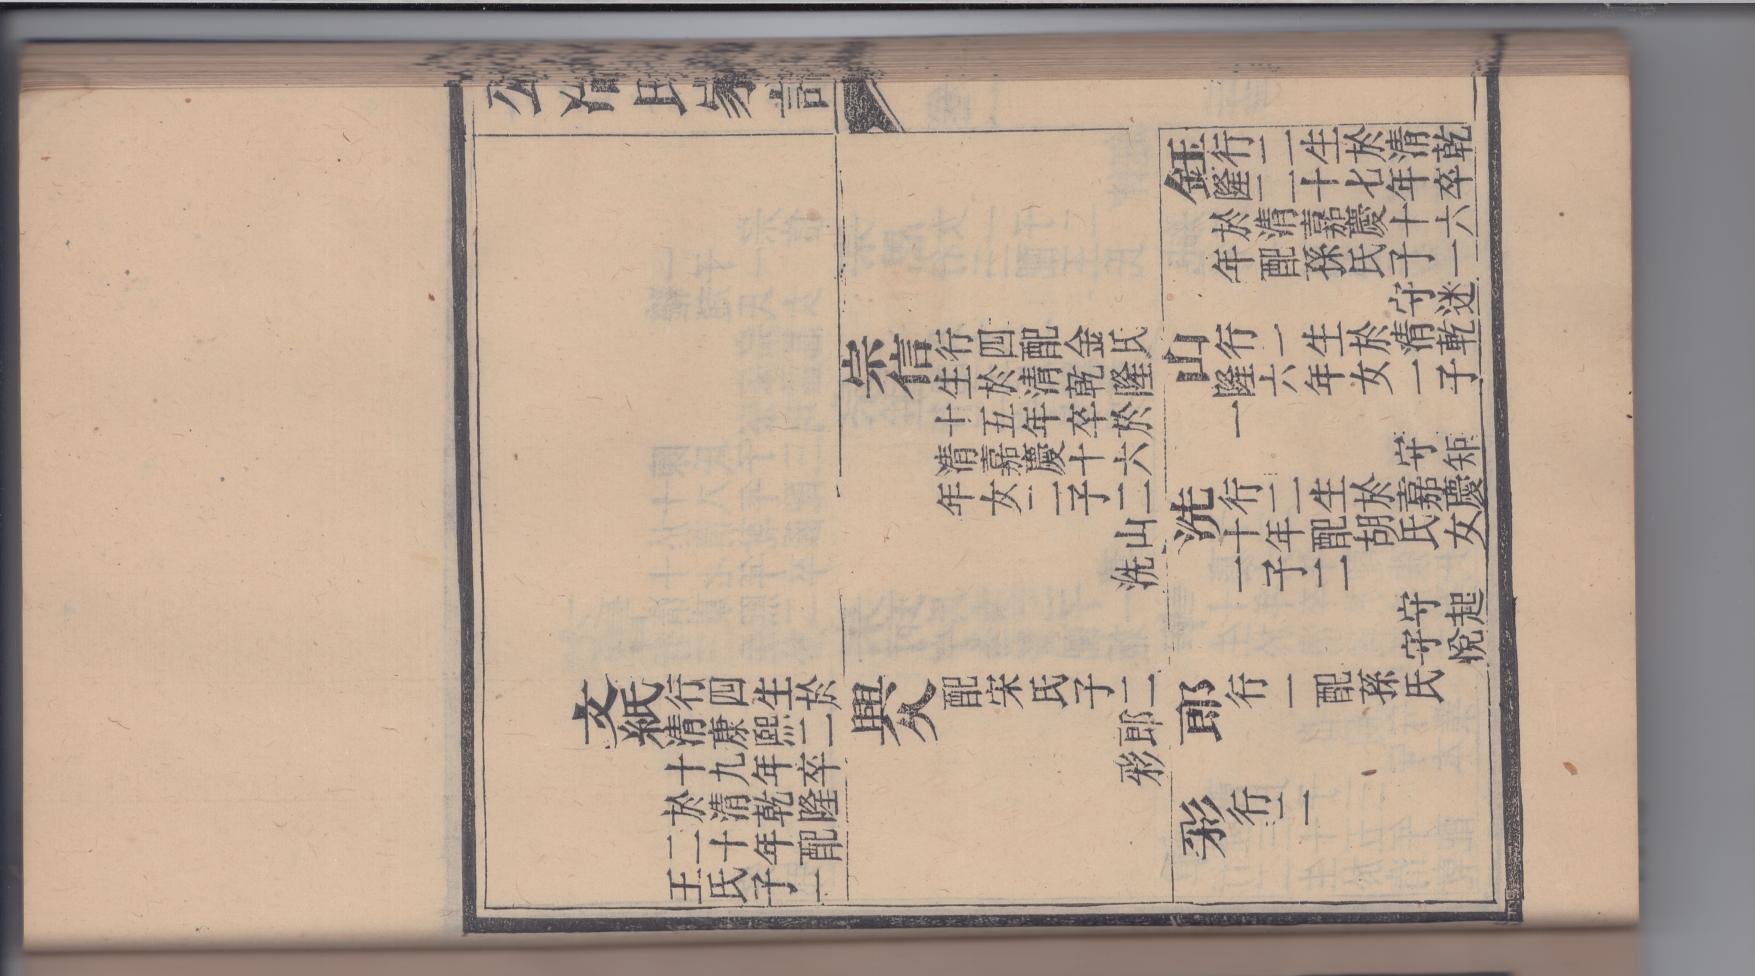 公冶氏家譜
鈺
行一生於清乾
隆二十七年卒
於清嘉慶十六
年配孫氏子一
守迷
崇信
行四配金氏
生於清乾隆
十五年卒於
清嘉慶十六
年女一子二
山
洗
山
行二生於清乾
隆六年女一子
一
守矩
洗
行三生於嘉慶
十年配胡氏女
一子二
守起
守悅
文紙
行四生於
清康熙二
十九年卒
於清乾隆
二十年配
王氏子一
興久
配宋氏子二
郎
彩
郎
行一配孫氏
彩
行二